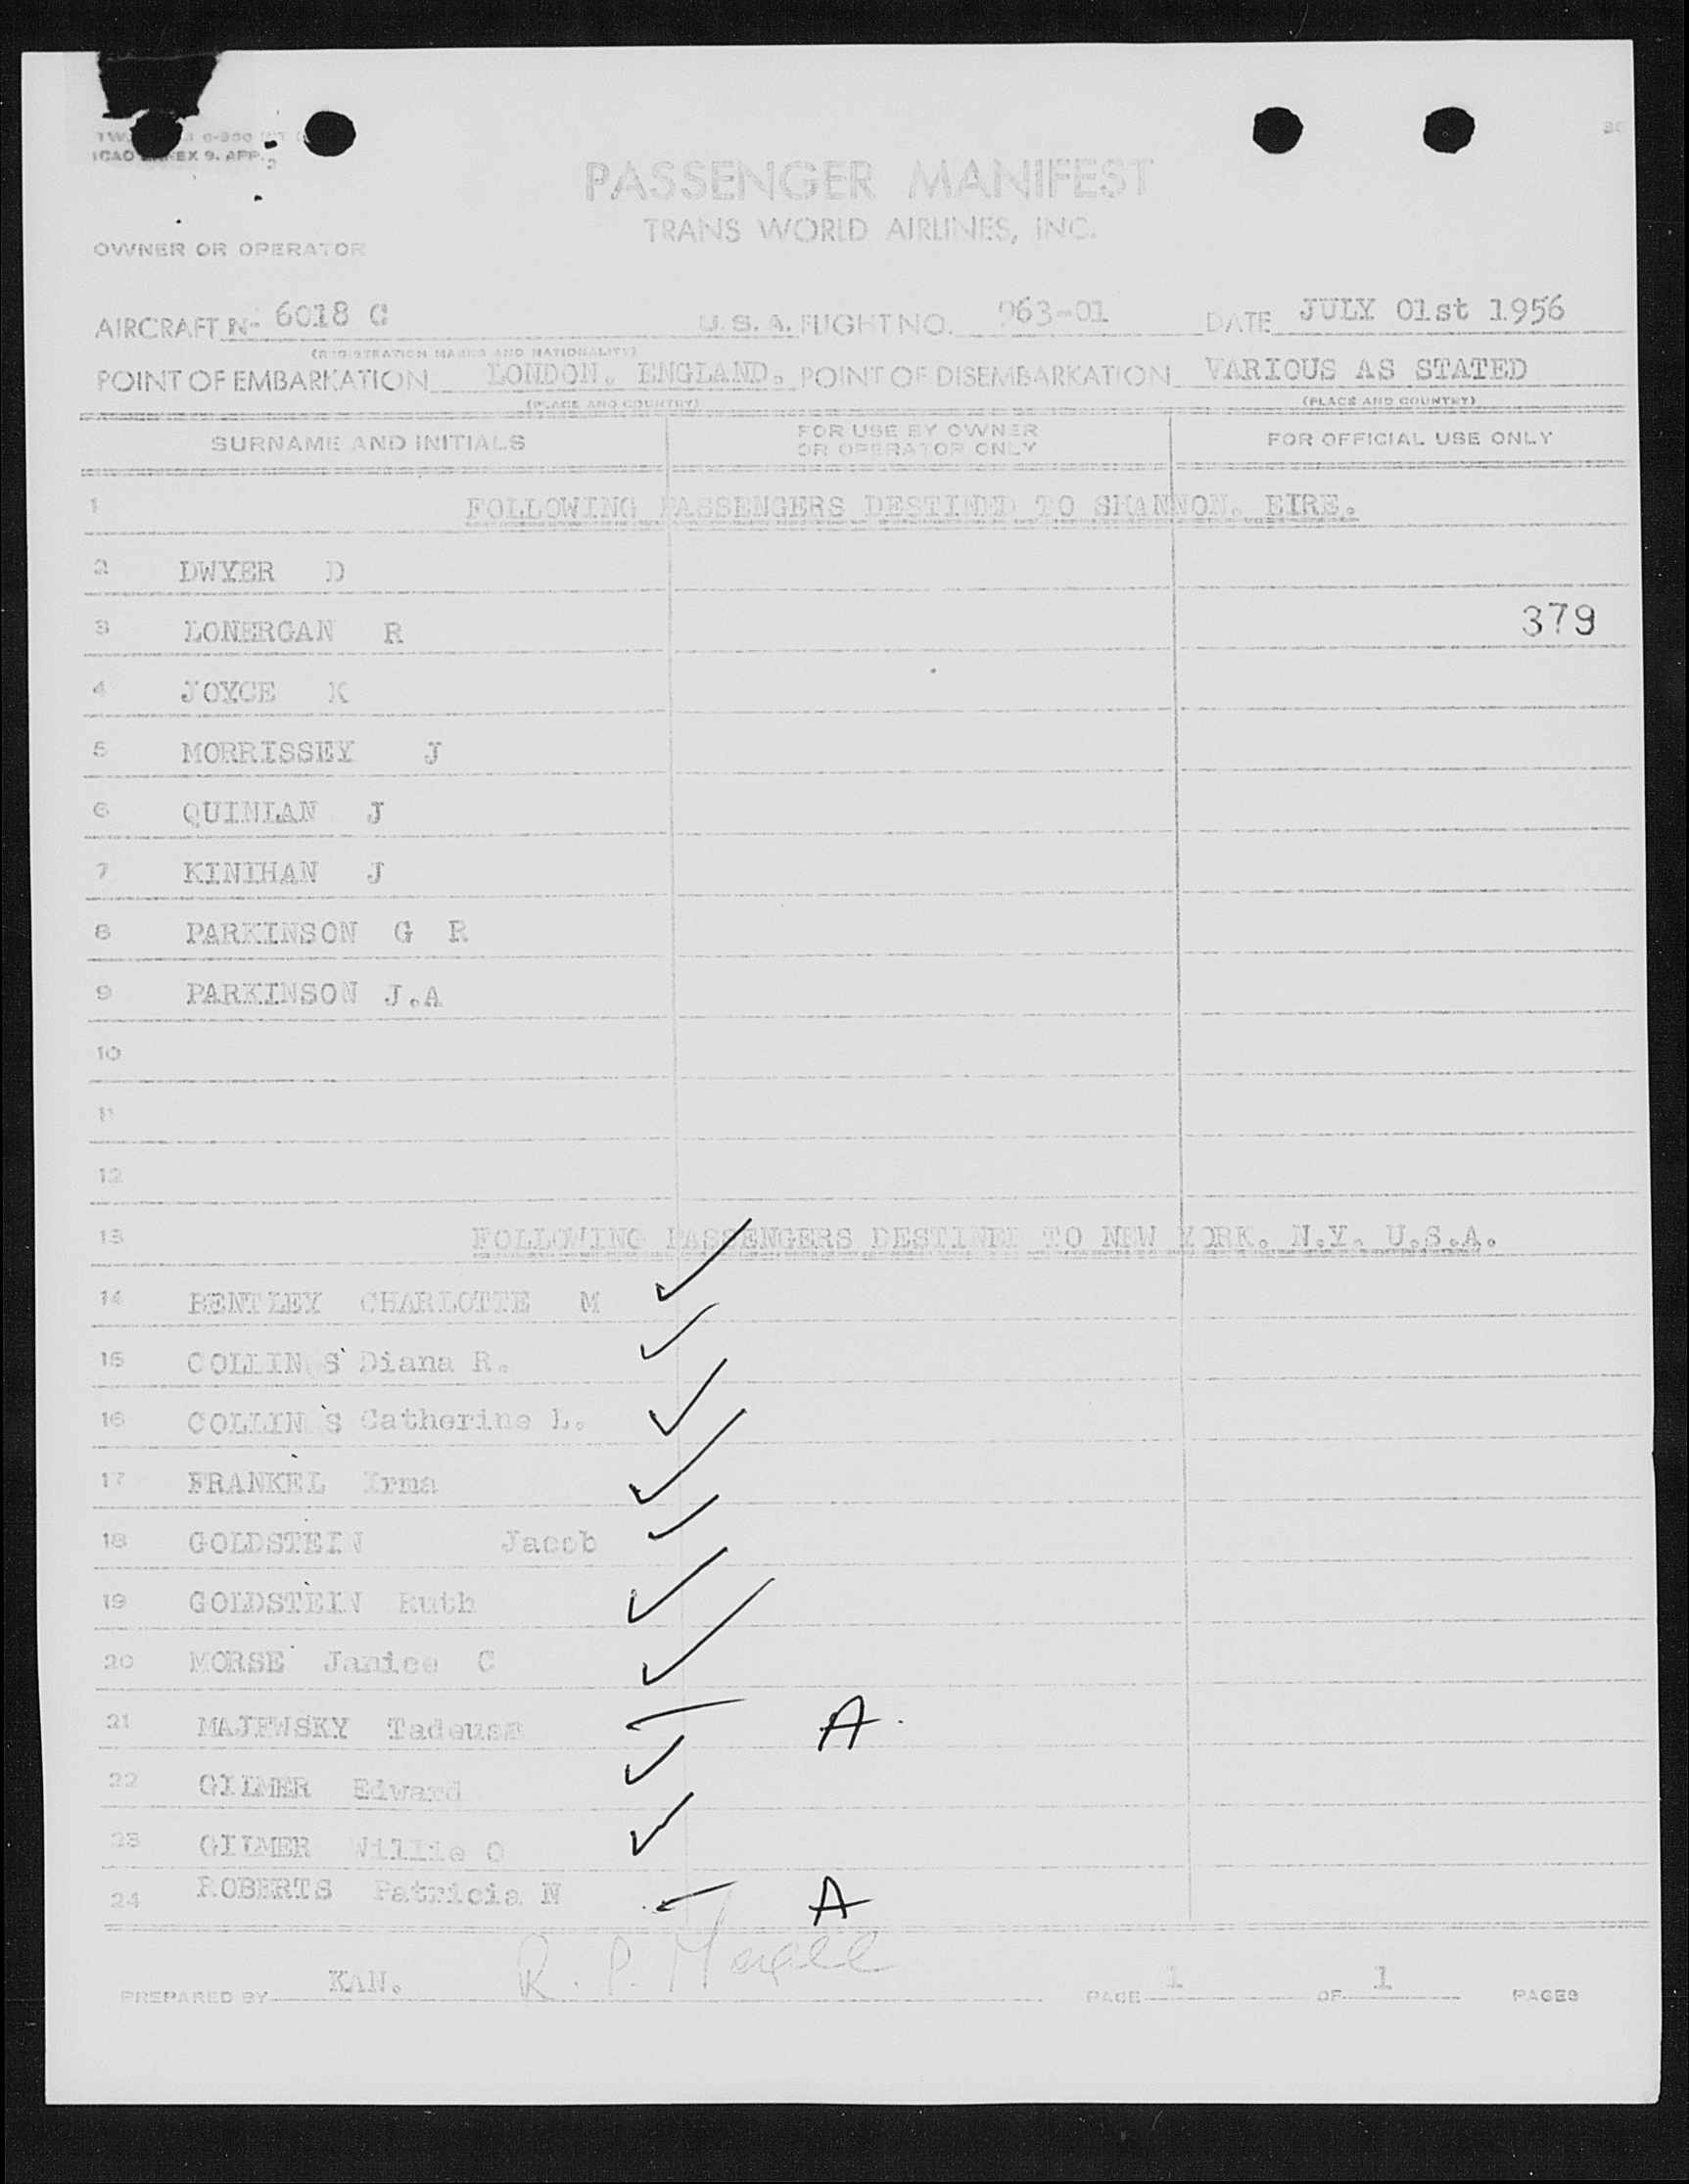 ICAO ANNEX 9. APP. 2
PASSENGER MANIFEST
TRANS WORLD AIRLINES, INC.
OWNER OR OPERATOR
AIRCRAFT N- 6018 C U.S.A. FLIGHT NO. 963-01 DATE JULY 01st 1956
(REGISTRATION MARKS AND NATIONALITY)
POINT OF EMBARKATION LONDON. ENGLAND. POINT OF DISEMBARKATION VARIOUS AS STATED
(PLACE AND COUNTRY) (PLACE AND COUNTRY)
SURNAME AND INITIALS FOR USE BY OWNER OR OPERATOR ONLY FOR OFFICIAL USE ONLY
1 FOLLOWING PASSENGERS DESTINED TO SHANNON. EIRE.
2 DWYER D
3 LONERGAN R 379
4 JOYCE K
5 MORRISSEY J
6 QUINLAN J
7 KINIHAN J
8 PARKINSON G R
9 PARKINSON J.A
10
11
12
13 FOLLOWING PASSENGERS DESTINED TO NEW YORK. N.Y. U.S.A.
14 BENTLEY CHARLOTTE M ✓
15 COLLIN S Diana R. ✓
16 COLLIN S Catherine L. ✓
17 FRANKEL Irma ✓
18 GOLDSTEIN Jacob ✓
19 GOLDSTEIN Ruth ✓
20 MORSE Janice C ✓
21 MAJEWSKY Tadeusz A.
22 GILMER Edward ✓
23 GILMER Willie O ✓
24 ROBERTS Patricia N A
PREPARED BY KAN. R. P. PAGE 1 OF 1 PAGES